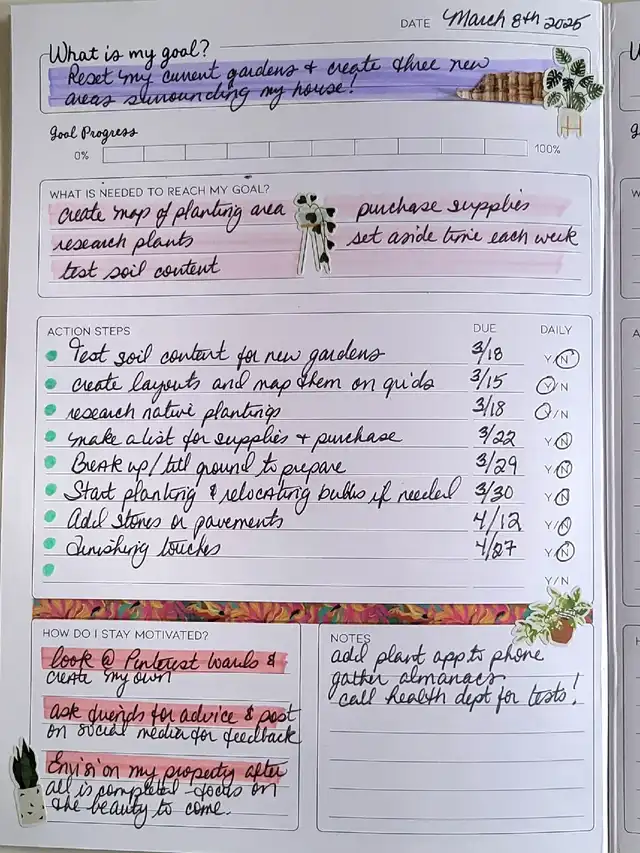 DATE March 8th 2025
What is my goal?
Reset my current gardens & create three new
areas surrounding my house!
Goal Progress
0% 100%
WHAT IS NEEDED TO REACH MY GOAL?
create map of planting area
research plants
test soil content
purchase supplies
set aside time each week
ACTION STEPS DUE DAILY
Test soil content for new gardens 3/18 Y/N
create layouts and map them on grids 3/15 Y/N
research native plantings 3/18 Y/N
make a list for supplies & purchase 3/22 Y/N
Break up/till ground to prepare 3/29 Y/N
Start planting & relocating bulbs if needed 3/30 Y/N
Add stones or pavements 4/12 Y/N
Finishing touches 4/27 Y/N
Y/N
HOW DO I STAY MOTIVATED?
look @ Pinterest boards &
create my own
ask friends for advice & post
on social media for feedback
Envision my property after
all is completed - focus on
the beauty to come.
NOTES
add plant app to phone
gather almanacs
call health dept for tests!